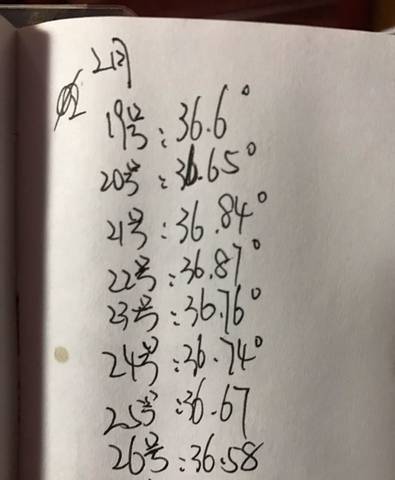 2月
19号:36.6°
20号:36.65°
21号:36.84°
22号:36.87°
23号:36.76°
24号:36.74°
25号:36.67
26号:36.58